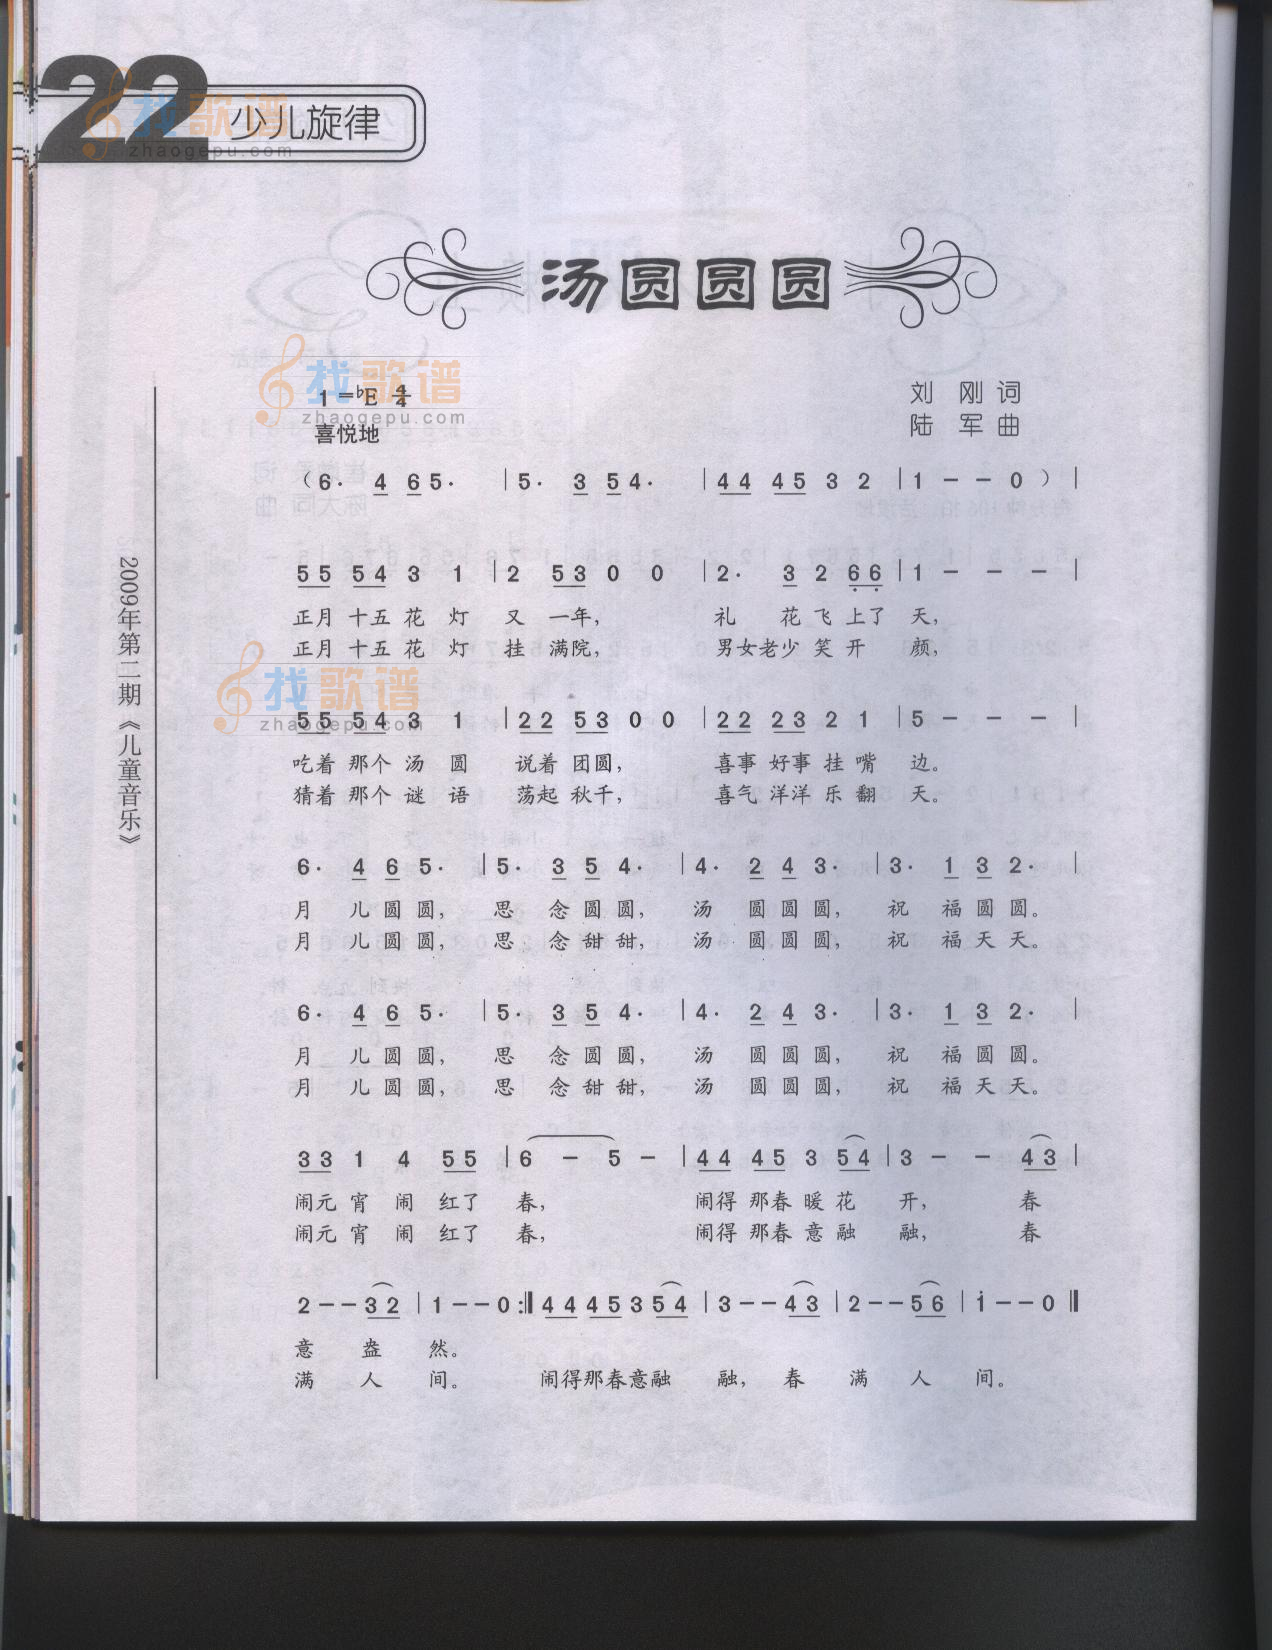 22 少儿旋律
找歌谱
zhaogepu.com
汤圆圆圆
找歌谱
zhaogepu.com
1=♭E 4/4
喜悦地
刘 刚 词
陆 军 曲
2009年第二期《儿童音乐》
（6· 4 6 5· | 5· 3 5 4· | 44 45 3 2 | 1 - - 0 ）|
55 54 3 1 | 2 53 0 0 | 2· 3 2 66 | 1 - - - |
正月 十五 花 灯 又 一年， 礼 花 飞 上了 天，
正月 十五 花 灯 挂 满院， 男女老少 笑 开 颜，
找歌谱
zhaogepu.com
55 54 3 1 | 22 53 0 0 | 22 23 2 1 | 5 - - - |
吃着 那个 汤 圆 说着 团圆， 喜事 好事 挂 嘴 边。
猜着 那个 谜 语 荡起 秋千， 喜气 洋洋 乐 翻 天。
6· 4 6 5· | 5· 3 5 4· | 4· 2 4 3· | 3· 1 3 2· |
月 儿 圆 圆， 思 念 圆 圆， 汤 圆 圆 圆， 祝 福 圆 圆。
月 儿 圆 圆， 思 念 甜 甜， 汤 圆 圆 圆， 祝 福 天 天。
6· 4 6 5· | 5· 3 5 4· | 4· 2 4 3· | 3· 1 3 2· |
月 儿 圆 圆， 思 念 圆 圆， 汤 圆 圆 圆， 祝 福 圆 圆。
月 儿 圆 圆， 思 念 甜 甜， 汤 圆 圆 圆， 祝 福 天 天。
33 1 4 55 | 6 - 5 - | 44 45 3 54 | 3 - - 43 |
闹元 宵 闹 红了 春， 闹得 那春 暖 花 开， 春
闹元 宵 闹 红了 春， 闹得 那春 意 融 融， 春
2 - - 32 | 1 - - 0 :‖ 44 45 3 54 | 3 - - 43 | 2 - - 56 | i - - 0 ‖
意 盎 然。
满 人 间。 闹得那春意融 融， 春 满 人 间。